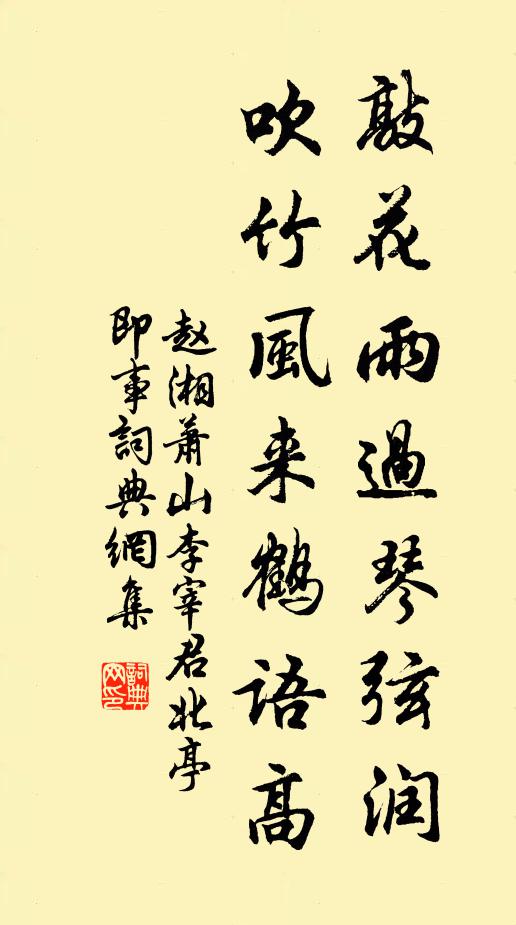 敲花雨過琴弦润
吹竹風来鶴語高
赵湘萧山李宰君北亭
即事詞典網集
詞典网印